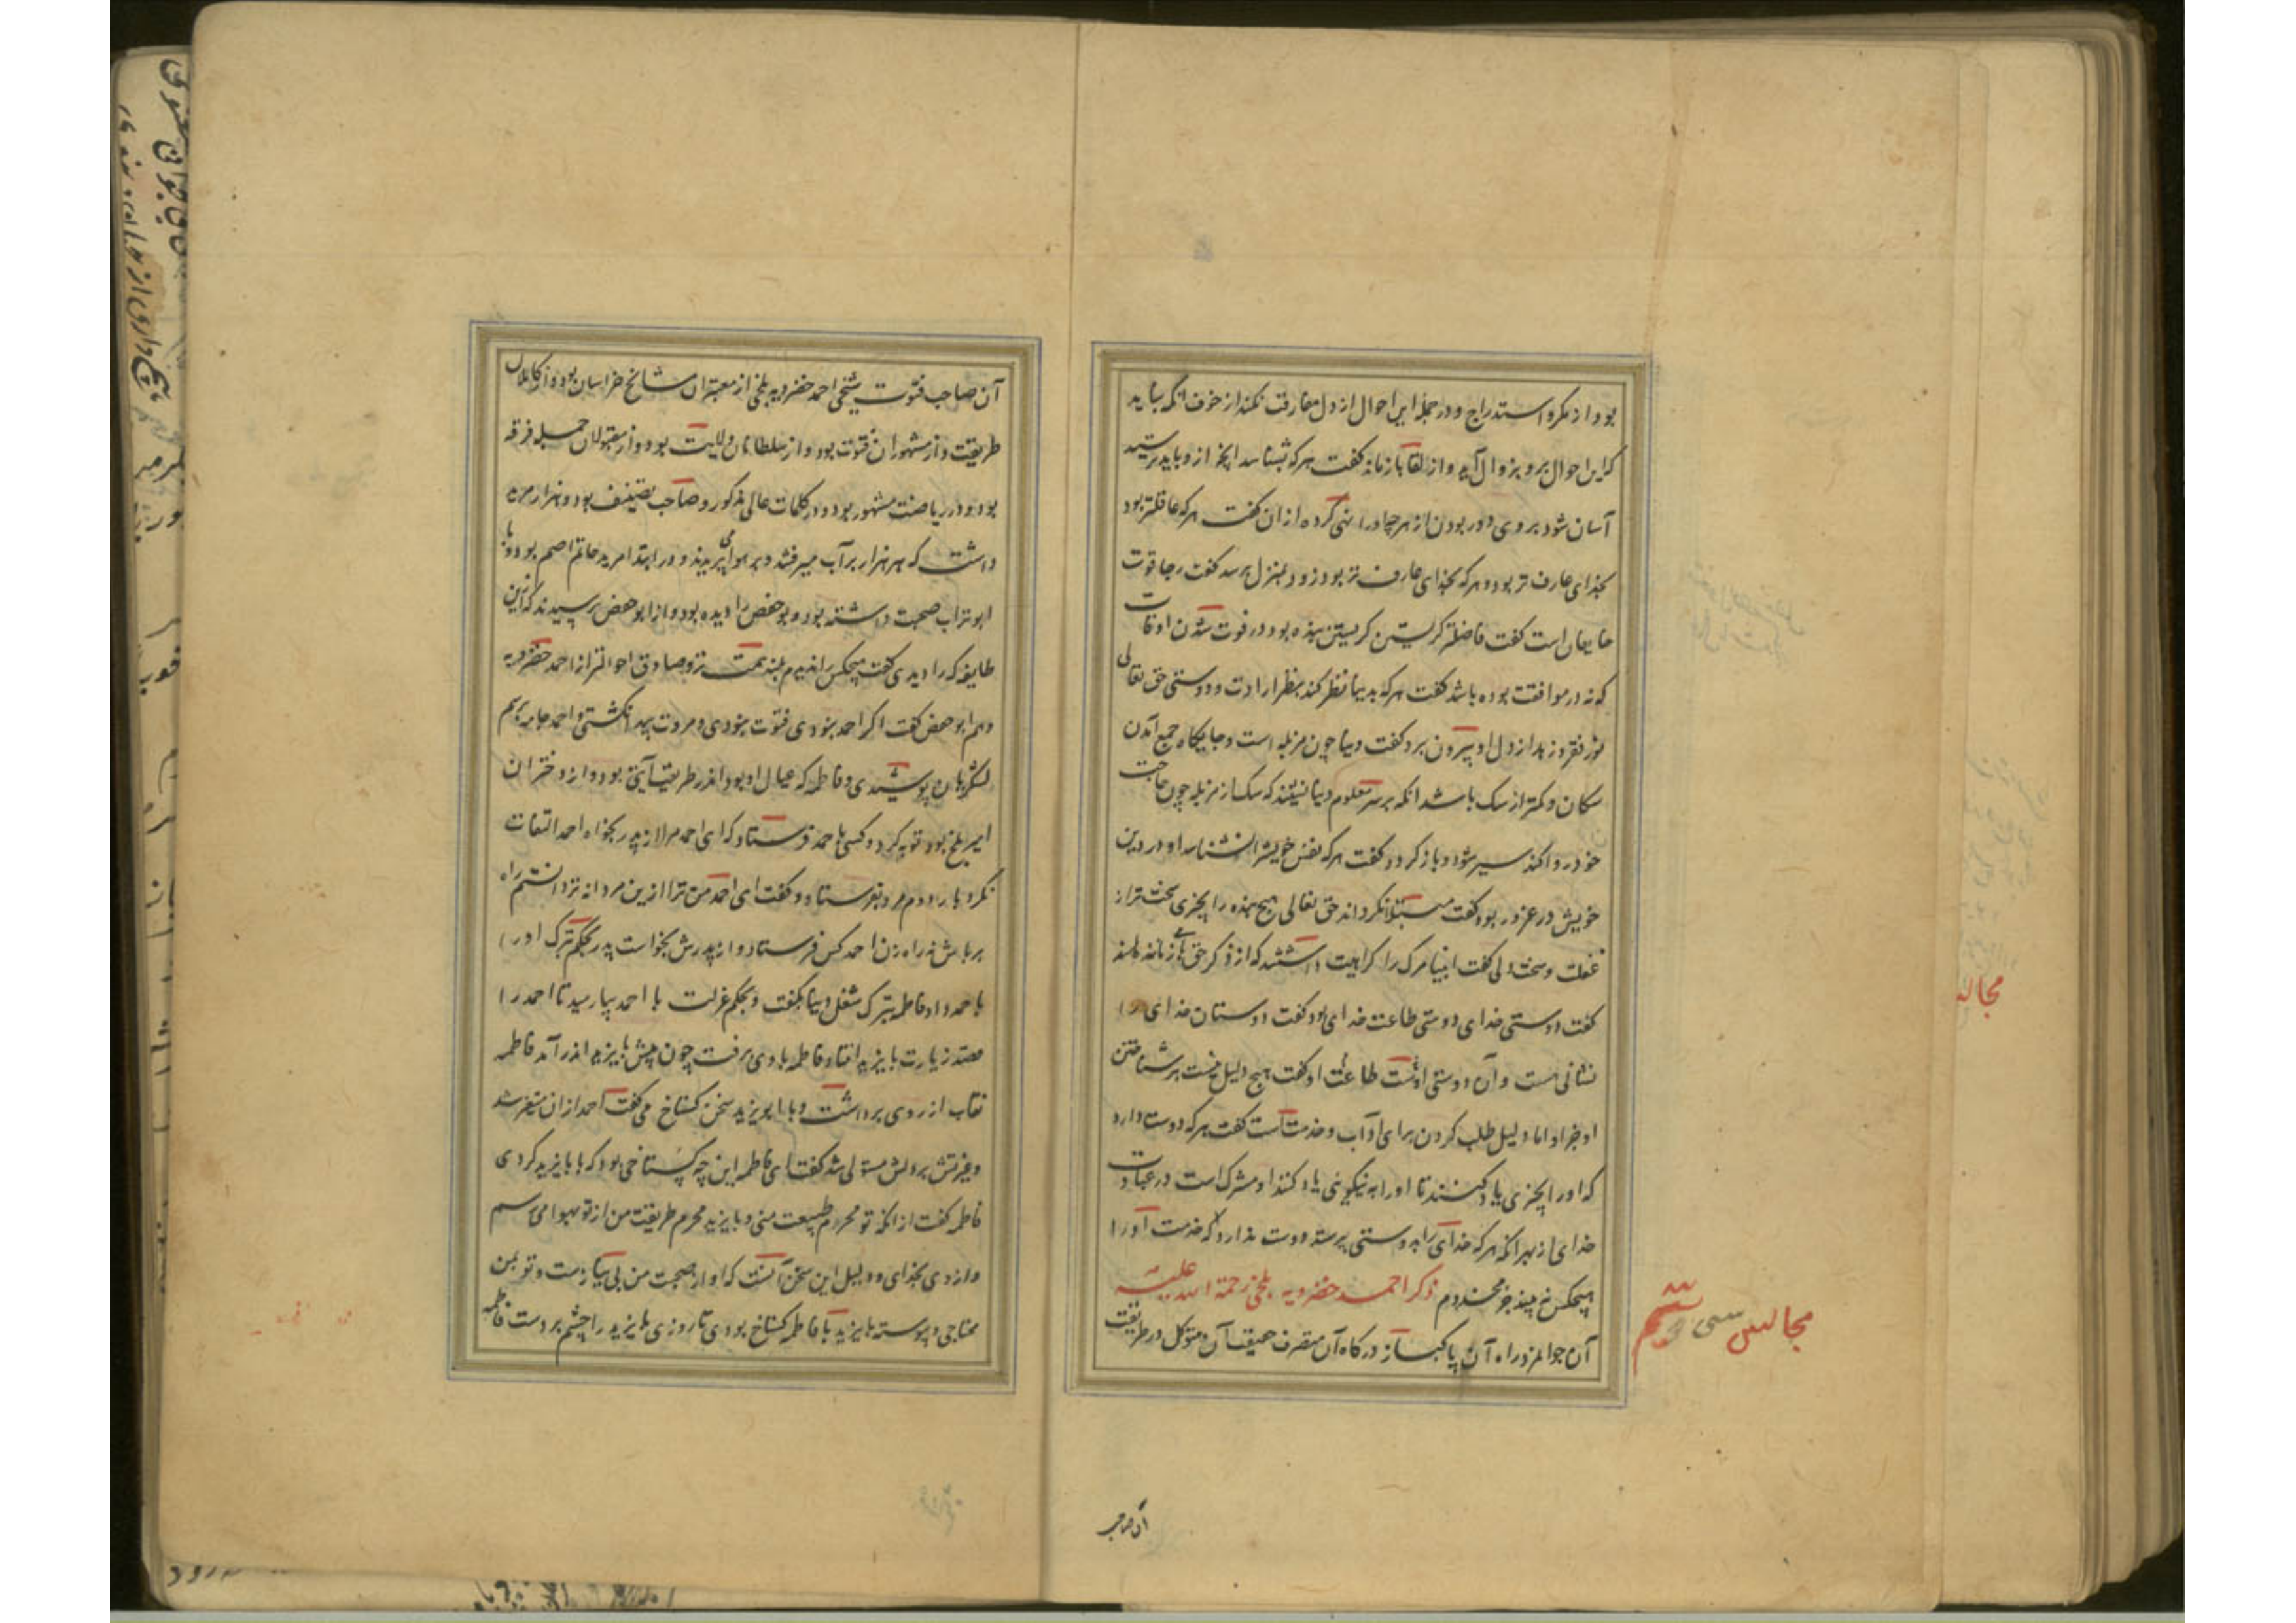 بود از مکر و استدراج و در جملهٔ این احوال از دل مفارقت نکند از خوف آنکه نباید
که این احوال برو بزوال آید و از لقا باز ماند گفت هرکه بشناسد آنچه ازو باید ترسید
آسان شود بروی دور بودن از هرچه او را نهی کرده از آن گفت هرکه عاقلتر بود
بخدای عارف تر بود و هرکه بخدای عارف تر بود زود بمنزل برسد گفت رجا قوت
خایفان است گفت فاضلترگریستن گریستن بنده بود در فوت شدن اوقات
که نه در موافقت بوده باشد گفت هرکه بدنیا نظر کند بنظر ارادت و دوستی حق تعالی
نور فقر و زهد از دل او بیرون برد گفت دنیا چون مزبله است و جایگاه جمع آمدن
سکان و کمتر از سک باشد آنکه بر سر معلوم دنیا نشیند که سک از مزبله چون حاجت
خود روا کند سیر شود و باز گردد گفت هرکه نفس خویش را نشناسد او در دین
خویش در غرور بود گفت مبتلا نگرداند حق تعالی هیچ بنده را بچیزی سخت تر از
غفلت و سخت دلی گفت انبیا مرک را کراهیت داشتند که از ذکر حق باز ماندند
گفت دوستی خدای دوستی طاعت خدای بود گفت دوستان خدای را
نشانی هست و آن دوستی اوست طاعت او گفت هیچ دلیل نیست بر شناختن
او جز او اما دلیل طلب کردن برای آداب و خدمت است گفت هرکه دوست دارد
که او را بچیزی یاد کنند تا او را به نیکوئی یاد کنند او مشرک است در عبادت
خدای از بهر آنکه هرکه خدای را بدوستی پرستد دوست ندارد که خدمت او را
هیچکس بیند جز مخدوم ذکر احمد خضرویه بلخی رحمة الله علیه
آن جوانمرد راه آن پاکباز درگاه آن متصرف حقیقت آن متوکل در طریقت
مجالس سی ششم
آن صاحب
آن صاحب فتوت شیخ احمد خضرویه بلخی از معتبران مشایخ خراسان بود و از کاملان
طریقت و از مشهوران فتوت بود و از سلطانان ولایت بود و از مقبولان جمله فرقه
بود و در ریاضت مشهور بود و در کلمات عالی مذکور و صاحب تصنیف بود و هزار مرید
داشت که هر هزار بر آب میرفتند و بر هوا می پریدند و در ابتدا مرید حاتم اصم بود و با
ابو تراب صحبت داشته بود و بوحفص را دیده بود و از ابوحفص پرسیدند که ازین
طایفه که را دیدی گفت هیچکس را ندیدم بلند همت تر و صادق احوال تر از احمد خضرویه
و هم ابو حفص گفت اگر احمد نبودی فتوت نبودی و مروت پیدا نگشتی و احمد جامه برسم
لشکریان پوشیدی و فاطمه که عیال او بود اندر طریقت آیتی بود و از دختران
امیر بلخ بود توبه کرد و کسی باحمد فرستاد که ای احمد مرا از پدر بخواه احمد التفات
نکرد بار دوم مرد بفرستاد و گفت ای احمد من ترا ازین مردانه تر دانستم راه
بر باش نه راه زن احمد کس فرستاد و از پدرش بخواست پدر بحکم تبرک او را
باحمد داد فاطمه بترک شغل دنیا بگفت و بحکم عزلت با احمد بیارمید تا احمد را
قصد زیارت بایزید افتاد فاطمه با وی برفت چون پیش بایزید اندر آمد فاطمه
نقاب از روی برداشت و با ابویزید سخن گستاخ می گفت احمد از آن متغیر شد
و غیرتش بر دلش مستولی شد گفت ای فاطمه این چه گستاخی بود که با بایزید کردی
فاطمه گفت از آنکه تو محرم طبیعت منی و بایزید محرم طریقت من از تو بهوا می رسم
و از وی بخدای و دلیل این سخن آنست که او از صحبت من بی نیازست و تو بمن
محتاجی و پیوسته بایزید با فاطمه گستاخ بودی تا روزی بایزید را چشم بر دست فاطمه